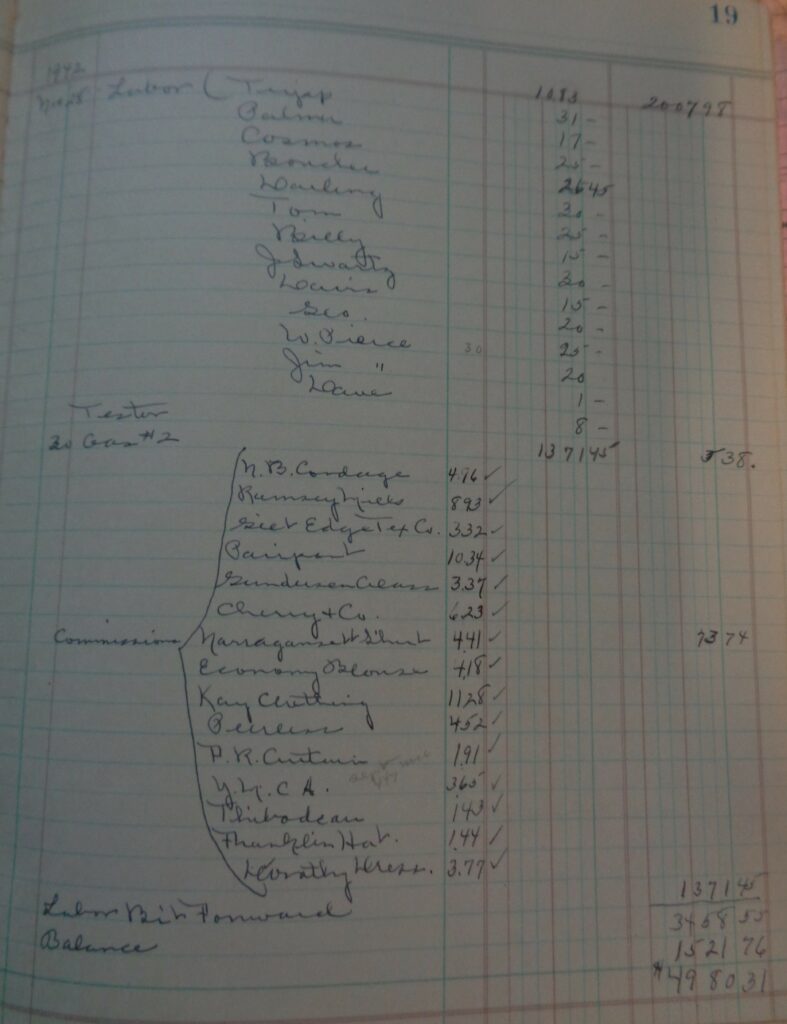 19
1942
Nov 28 Labor ( 1083 200798
Palmer 31 -
Cosmos 17 -
25 -
Darling 2645
Tom 30 -
Reilly 25 -
J. Swartz 15 -
Davis 30 -
Geo. 15 -
W. Pierce 20 -
Jim " 30 25 -
Dave 20
1 -
Tester 8 -
30 Gas #2 137145 538.
N. B. Cordage 4.76 ✓
Ramsey Mills 893 ✓
Gilt Edge Tex Co. 332 ✓
Pairpont 10.34 ✓
Gunderson Glass 3.37 ✓
Cherry + Co. 623 ✓
Commissions Narragansett Shirt 4.41 ✓ 7374
Economy Blouse 418 ✓
Kay Clothing 1128 ✓
Peerless 452 ✓
P. R. Curtain 191 ✓
Y. M. C A. 365 ✓
Thibodeau 143 ✓
Franklin Hat. 144 ✓
Dorothy Dress. 3.77 ✓
137145
Labor Bit Forward 345855
Balance 152176
$498031